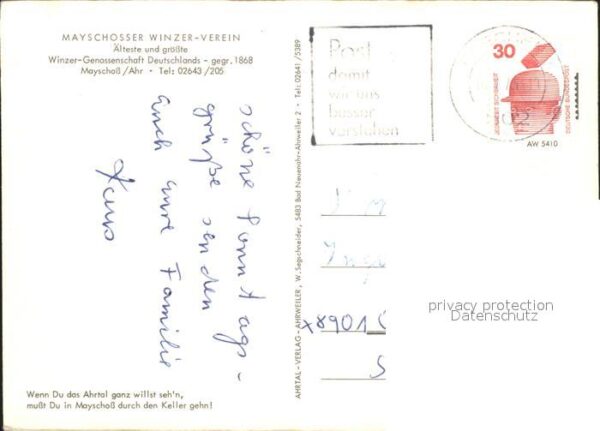 MAYSCHOSSER WINZER-VEREIN
Älteste und größte
Winzer-Genossenschaft Deutschlands - gegr. 1868
Mayschoß/Ahr • Tel: 02643/205
schöne Sonntags-
grüße senden
Euch Eure Familie
Wenn Du das Ahrtal ganz willst seh'n,
mußt Du in Mayschoß durch den Keller gehn!
AHRTAL-VERLAG-AHRWEILER, W. Segschneider, 5483 Bad Neuenahr-Ahrweiler 2 • Tel: 02641/5389
Post
damit
wir uns
besser
verstehen
30
JEDERZEIT SICHERHEIT
DEUTSCHE BUNDESPOST
AW 5410
Inge
8901
privacy protection
Datenschutz